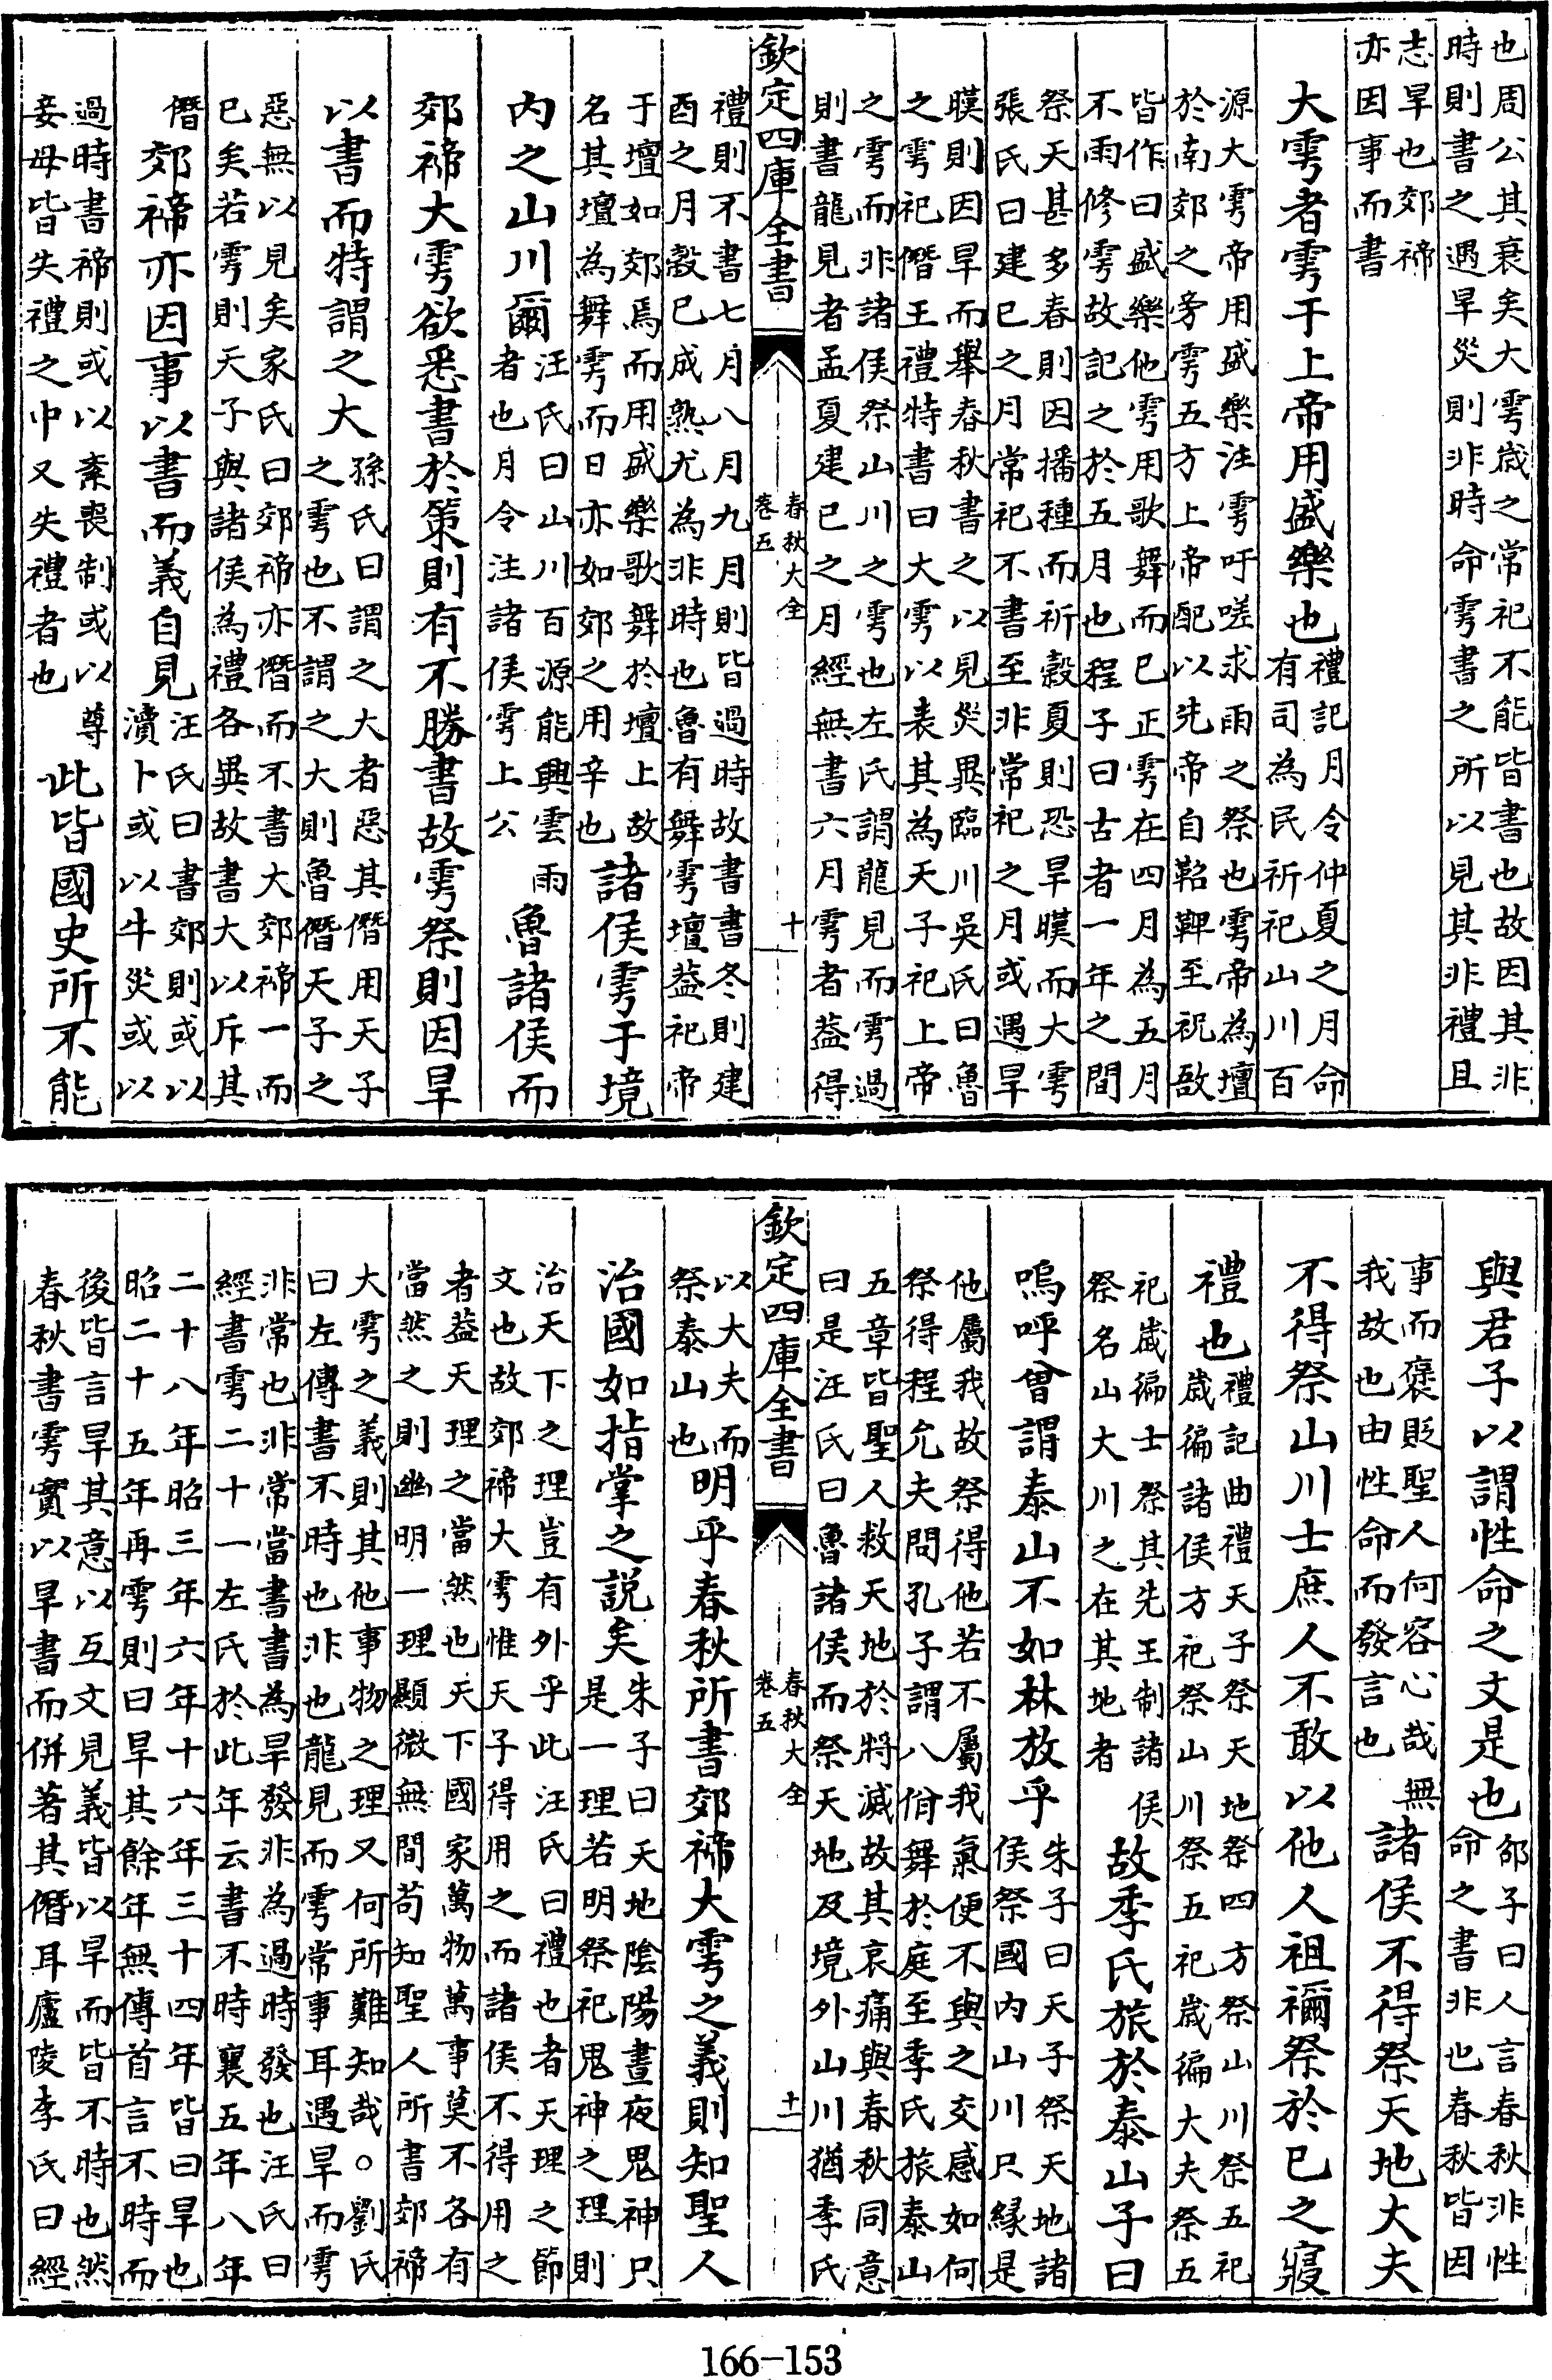 也周公其衰矣大雩嵗之常祀不能皆書也故因其非
時則書之遇旱災則非時命雩書之所以見其非禮且
志旱也郊禘
亦因事而書
大雩者雩于上帝用盛樂也
禮記月令仲夏之月命
有司為民祈祀山川百
源大雩帝用盛樂注雩吁嗟求雨之祭也雩帝為壇
於南郊之旁雩五方上帝配以先帝自鞀鞞至柷敔
皆作曰盛樂他雩用歌舞而已正雩在四月為五月
不雨修雩故記之於五月也程子曰古者一年之間
祭天甚多春則因播種而祈穀夏則恐旱暵而大雩
張氏曰建巳之月常祀不書至非常祀之月或遇旱
暵則因旱而舉春秋書之以見災異臨川吳氏曰魯
之雩祀僭王禮特書曰大雩以表其為天子祀上帝
之雩而非諸侯祭山川之雩也左氏謂龍見而雩過
則書龍見者孟夏建巳之月經無書六月雩者葢得
欽定四庫全書
春秋大全
卷五
十
禮則不書七月八月九月則皆過時故書書冬則建
酉之月穀已成熟尤為非時也魯有舞雩壇葢祀帝
于壇如郊焉而用盛樂歌舞於壇上故
名其壇為舞雩而曰亦如郊之用辛也
諸侯雩于境
内之山川爾
汪氏曰山川百源能興雲雨
者也月令注諸侯雩上公
魯諸侯而
郊禘大雩欲悉書於策則有不勝書故雩祭則因旱
以書而特謂之大
孫氏曰謂之大者惡其僭用天子
之雩也不謂之大則魯僭天子之
惡無以見矣家氏曰郊禘亦僭而不書大郊禘一而
已矣若雩則天子與諸侯為禮各異故書大以斥其
僭
郊禘亦因事以書而義自見
汪氏曰書郊則或以
瀆卜或以牛災或以
過時書禘則或以紊喪制或以尊
妾母皆失禮之中又失禮者也
此皆國史所不能
與君子以謂性命之文是也
邵子曰人言春秋非性
命之書非也春秋皆因
事而褒貶聖人何容心哉無
我故也由性命而發言也
諸侯不得祭天地大夫
不得祭山川士庶人不敢以他人祖禰祭於已之寢
禮也
禮記曲禮天子祭天地祭四方祭山川祭五祀
嵗徧諸侯方祀祭山川祭五祀嵗徧大夫祭五
祀嵗徧士祭其先王制諸侯
祭名山大川之在其地者
故季氏旅於泰山子曰
嗚呼曾謂泰山不如林放乎
朱子曰天子祭天地諸
侯祭國内山川只緣是
他屬我故祭得他若不屬我氣便不與之交感如何
祭得程允夫問孔子謂八佾舞於庭至季氏旅泰山
五章皆聖人救天地於將滅故其哀痛與春秋同意
曰是汪氏曰魯諸侯而祭天地及境外山川猶季氏
欽定四庫全書
春秋大全
卷五
十一
以大夫而
祭泰山也
明乎春秋所書郊禘大雩之義則知聖人
治國如指掌之說矣
朱子曰天地隂陽晝夜鬼神只
是一理若明祭祀鬼神之理則
治天下之理豈有外乎此汪氏曰禮也者天理之節
文也故郊禘大雩惟天子得用之而諸侯不得用之
者葢天理之當然也天下國家萬物萬事莫不各有
當然之則幽明一理顯微無間苟知聖人所書郊禘
大雩之義則其他事物之理又何所難知哉○劉氏
曰左傳書不時也非也龍見而雩常事耳遇旱而雩
非常也非常當書書為旱發非為過時發也汪氏曰
經書雩二十一左氏於此年云書不時襄五年八年
二十八年昭三年六年十六年三十四年皆曰旱也
昭二十五年再雩則曰旱其餘年無傳首言不時而
後皆言旱其意以互文見義皆以旱而皆不時也然
春秋書雩實以旱書而併著其僭耳廬陵李氏曰經
166-153